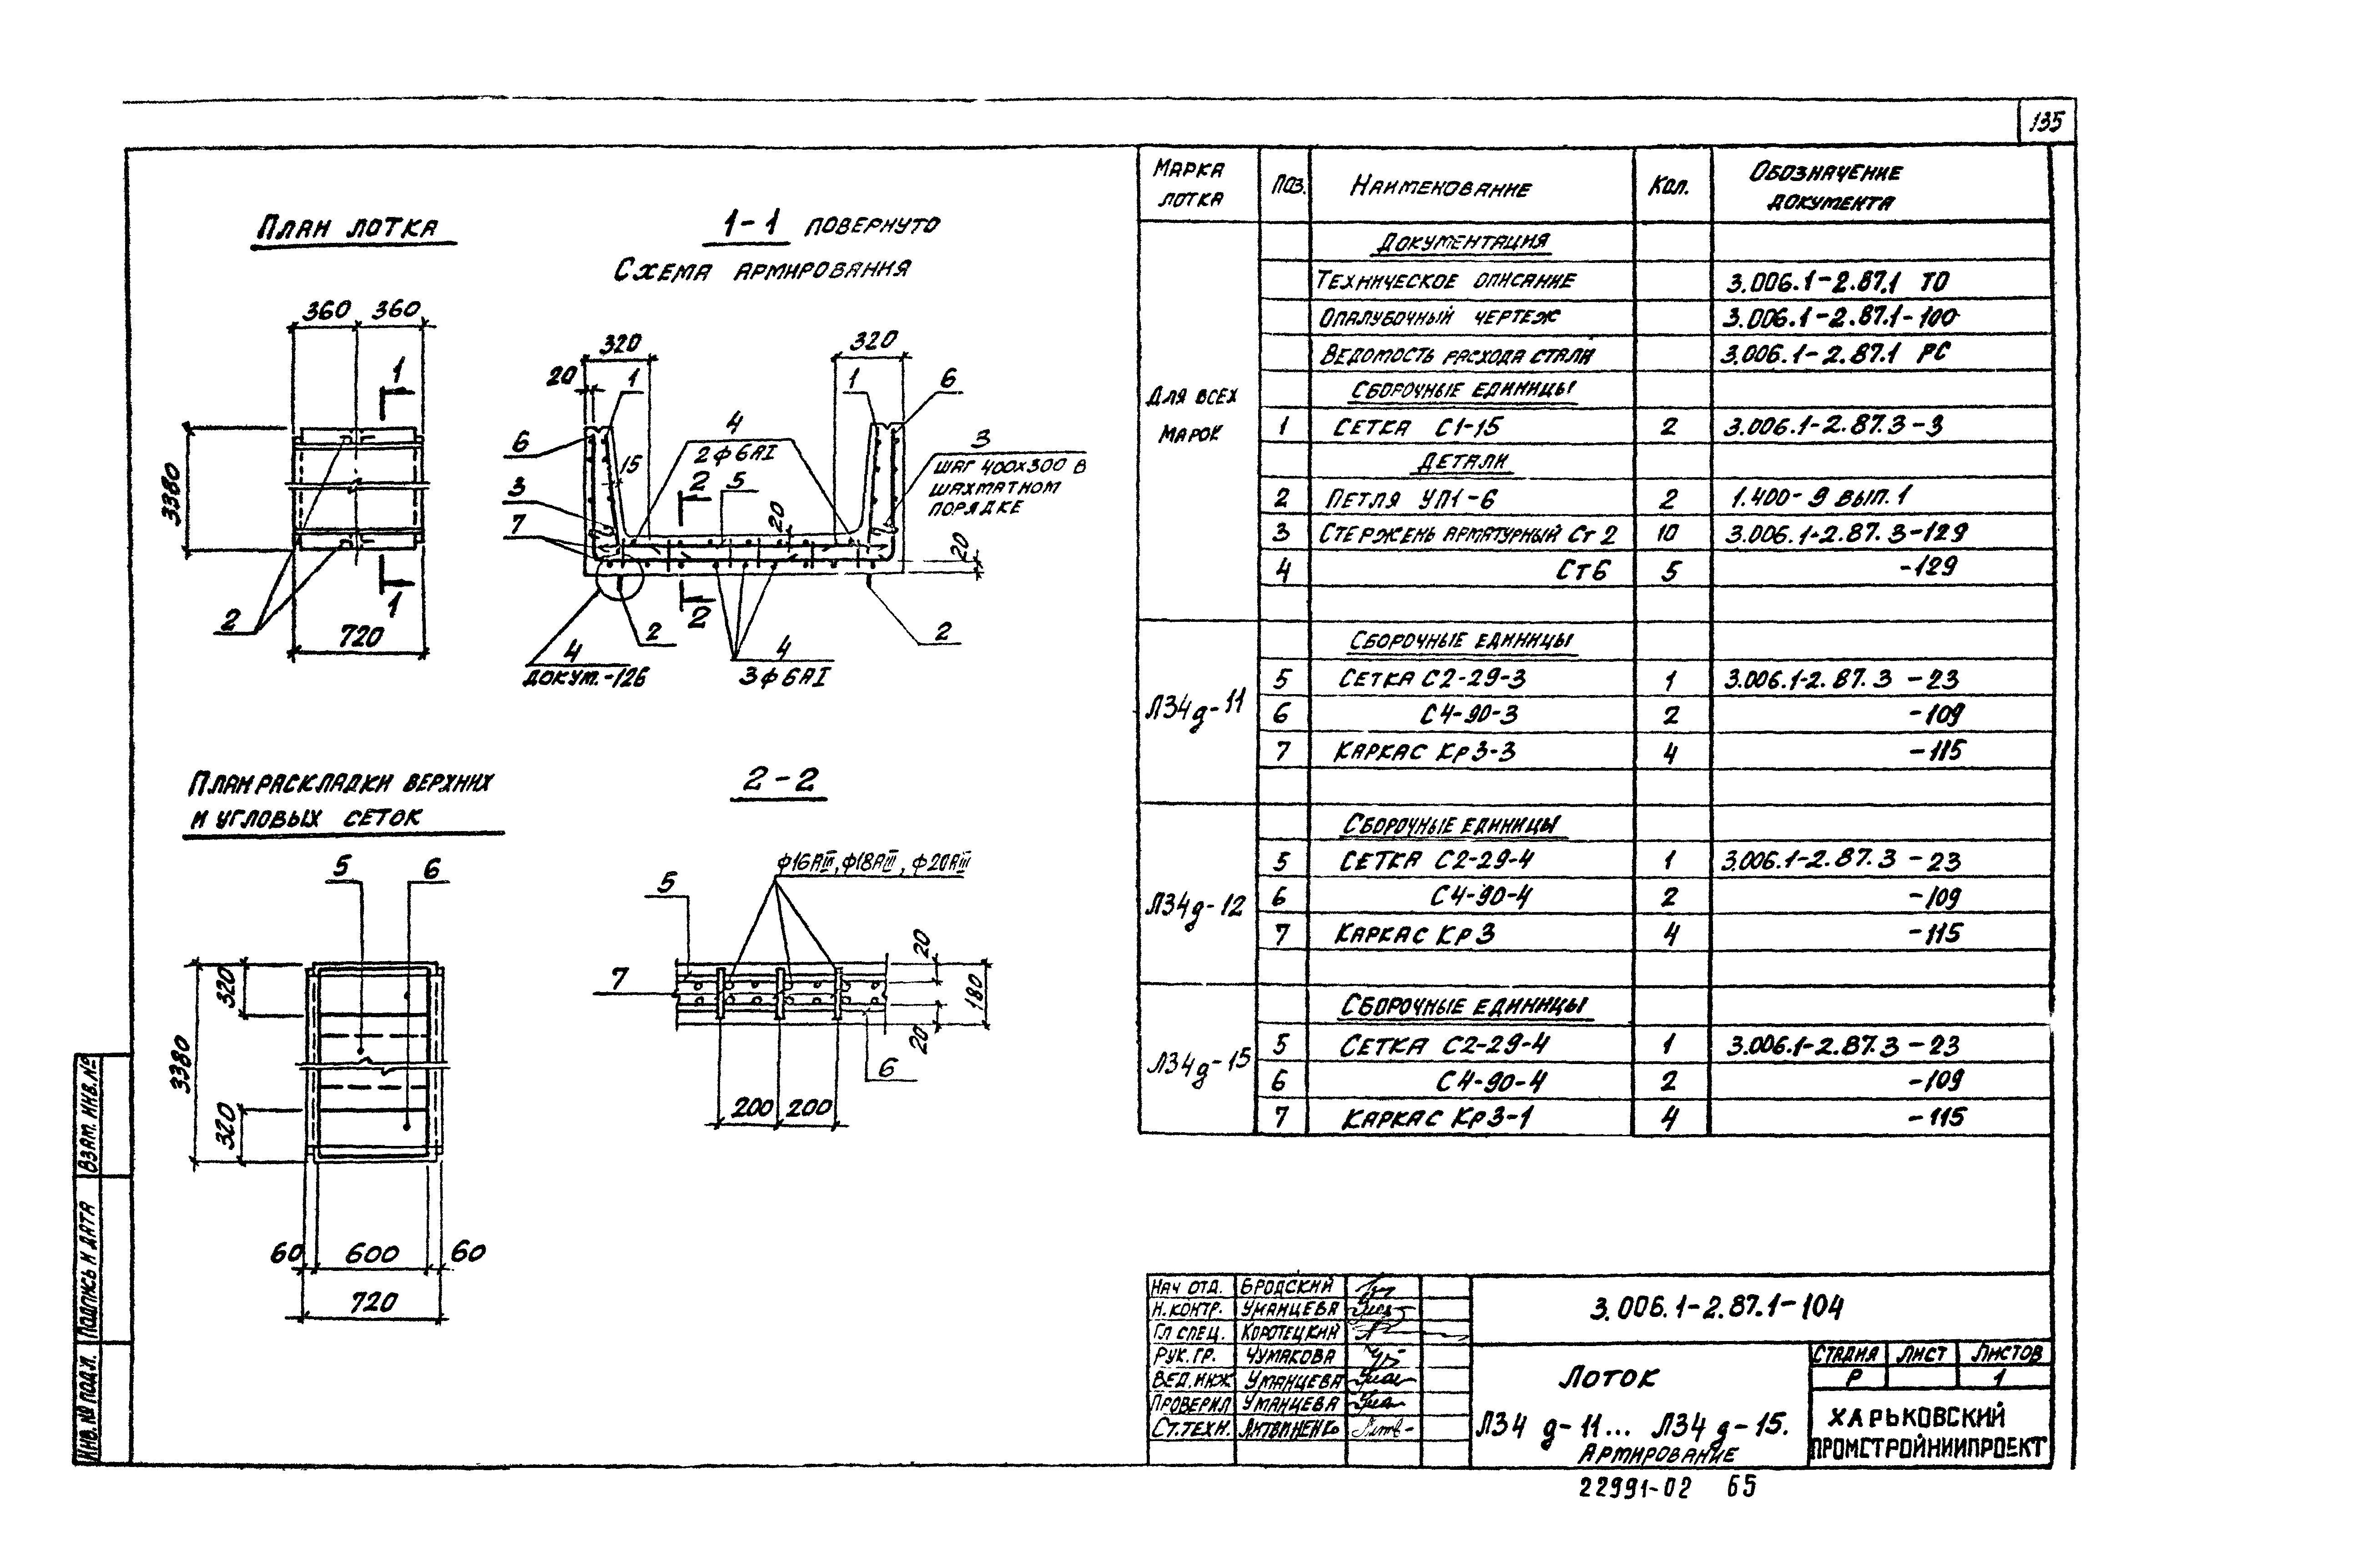 135
План лотка
360 360
1
3380
1
2
720
1-1 повернуто
Схема армирования
320 320
20 1 1 6
6 4 3
2ф6АI
15 2 5
шаг 400х300 в
шахматном
порядке
3
7
20
20
2 2 2
4 4
докум.-126 3ф6АI
План раскладки верхних
и угловых сеток
5 6
320
3380
320
60 600 60
720
2-2
ф16АIII, ф18АIII, ф20АIII
5
7
20
180
20
6
200 200
Марка лотка Поз. Наименование Кол. Обозначение документа
Для всех марок
Документация
Техническое описание 3.006.1-2.87.1 ТО
Опалубочный чертеж 3.006.1-2.87.1-100
Ведомость расхода стали 3.006.1-2.87.1 РС
Сборочные единицы
1 Сетка С1-15 2 3.006.1-2.87.3-3
Детали
2 Петля УП1-6 2 1.400-9 вып.1
3 Стержень арматурный Ст 2 10 3.006.1-2.87.3-129
4 Ст6 5 -129
Л34д-11
Сборочные единицы
5 Сетка С2-29-3 1 3.006.1-2.87.3 -23
6 С4-90-3 2 -109
7 Каркас Кр3-3 4 -115
Л34д-12
Сборочные единицы
5 Сетка С2-29-4 1 3.006.1-2.87.3 -23
6 С4-90-4 2 -109
7 Каркас Кр3 4 -115
Л34д-15
Сборочные единицы
5 Сетка С2-29-4 1 3.006.1-2.87.3 -23
6 С4-90-4 2 -109
7 Каркас Кр3-1 4 -115
Взам. инв.№
Подпись и дата
Инв.№ подл.
Нач отд. Бродский
Н.контр. Уманцева
Гл спец. Коротецкий
Рук. гр. Чумакова
Вед.инж Уманцева
Проверил Уманцева
Ст.техн. Литвиненко
3.006.1-2.87.1-104
Лоток
Л34 д-11... Л34 д-15.
Армирование
Стадия Лист Листов
Р 1
Харьковский
Промстройниипроект
22991-02 65